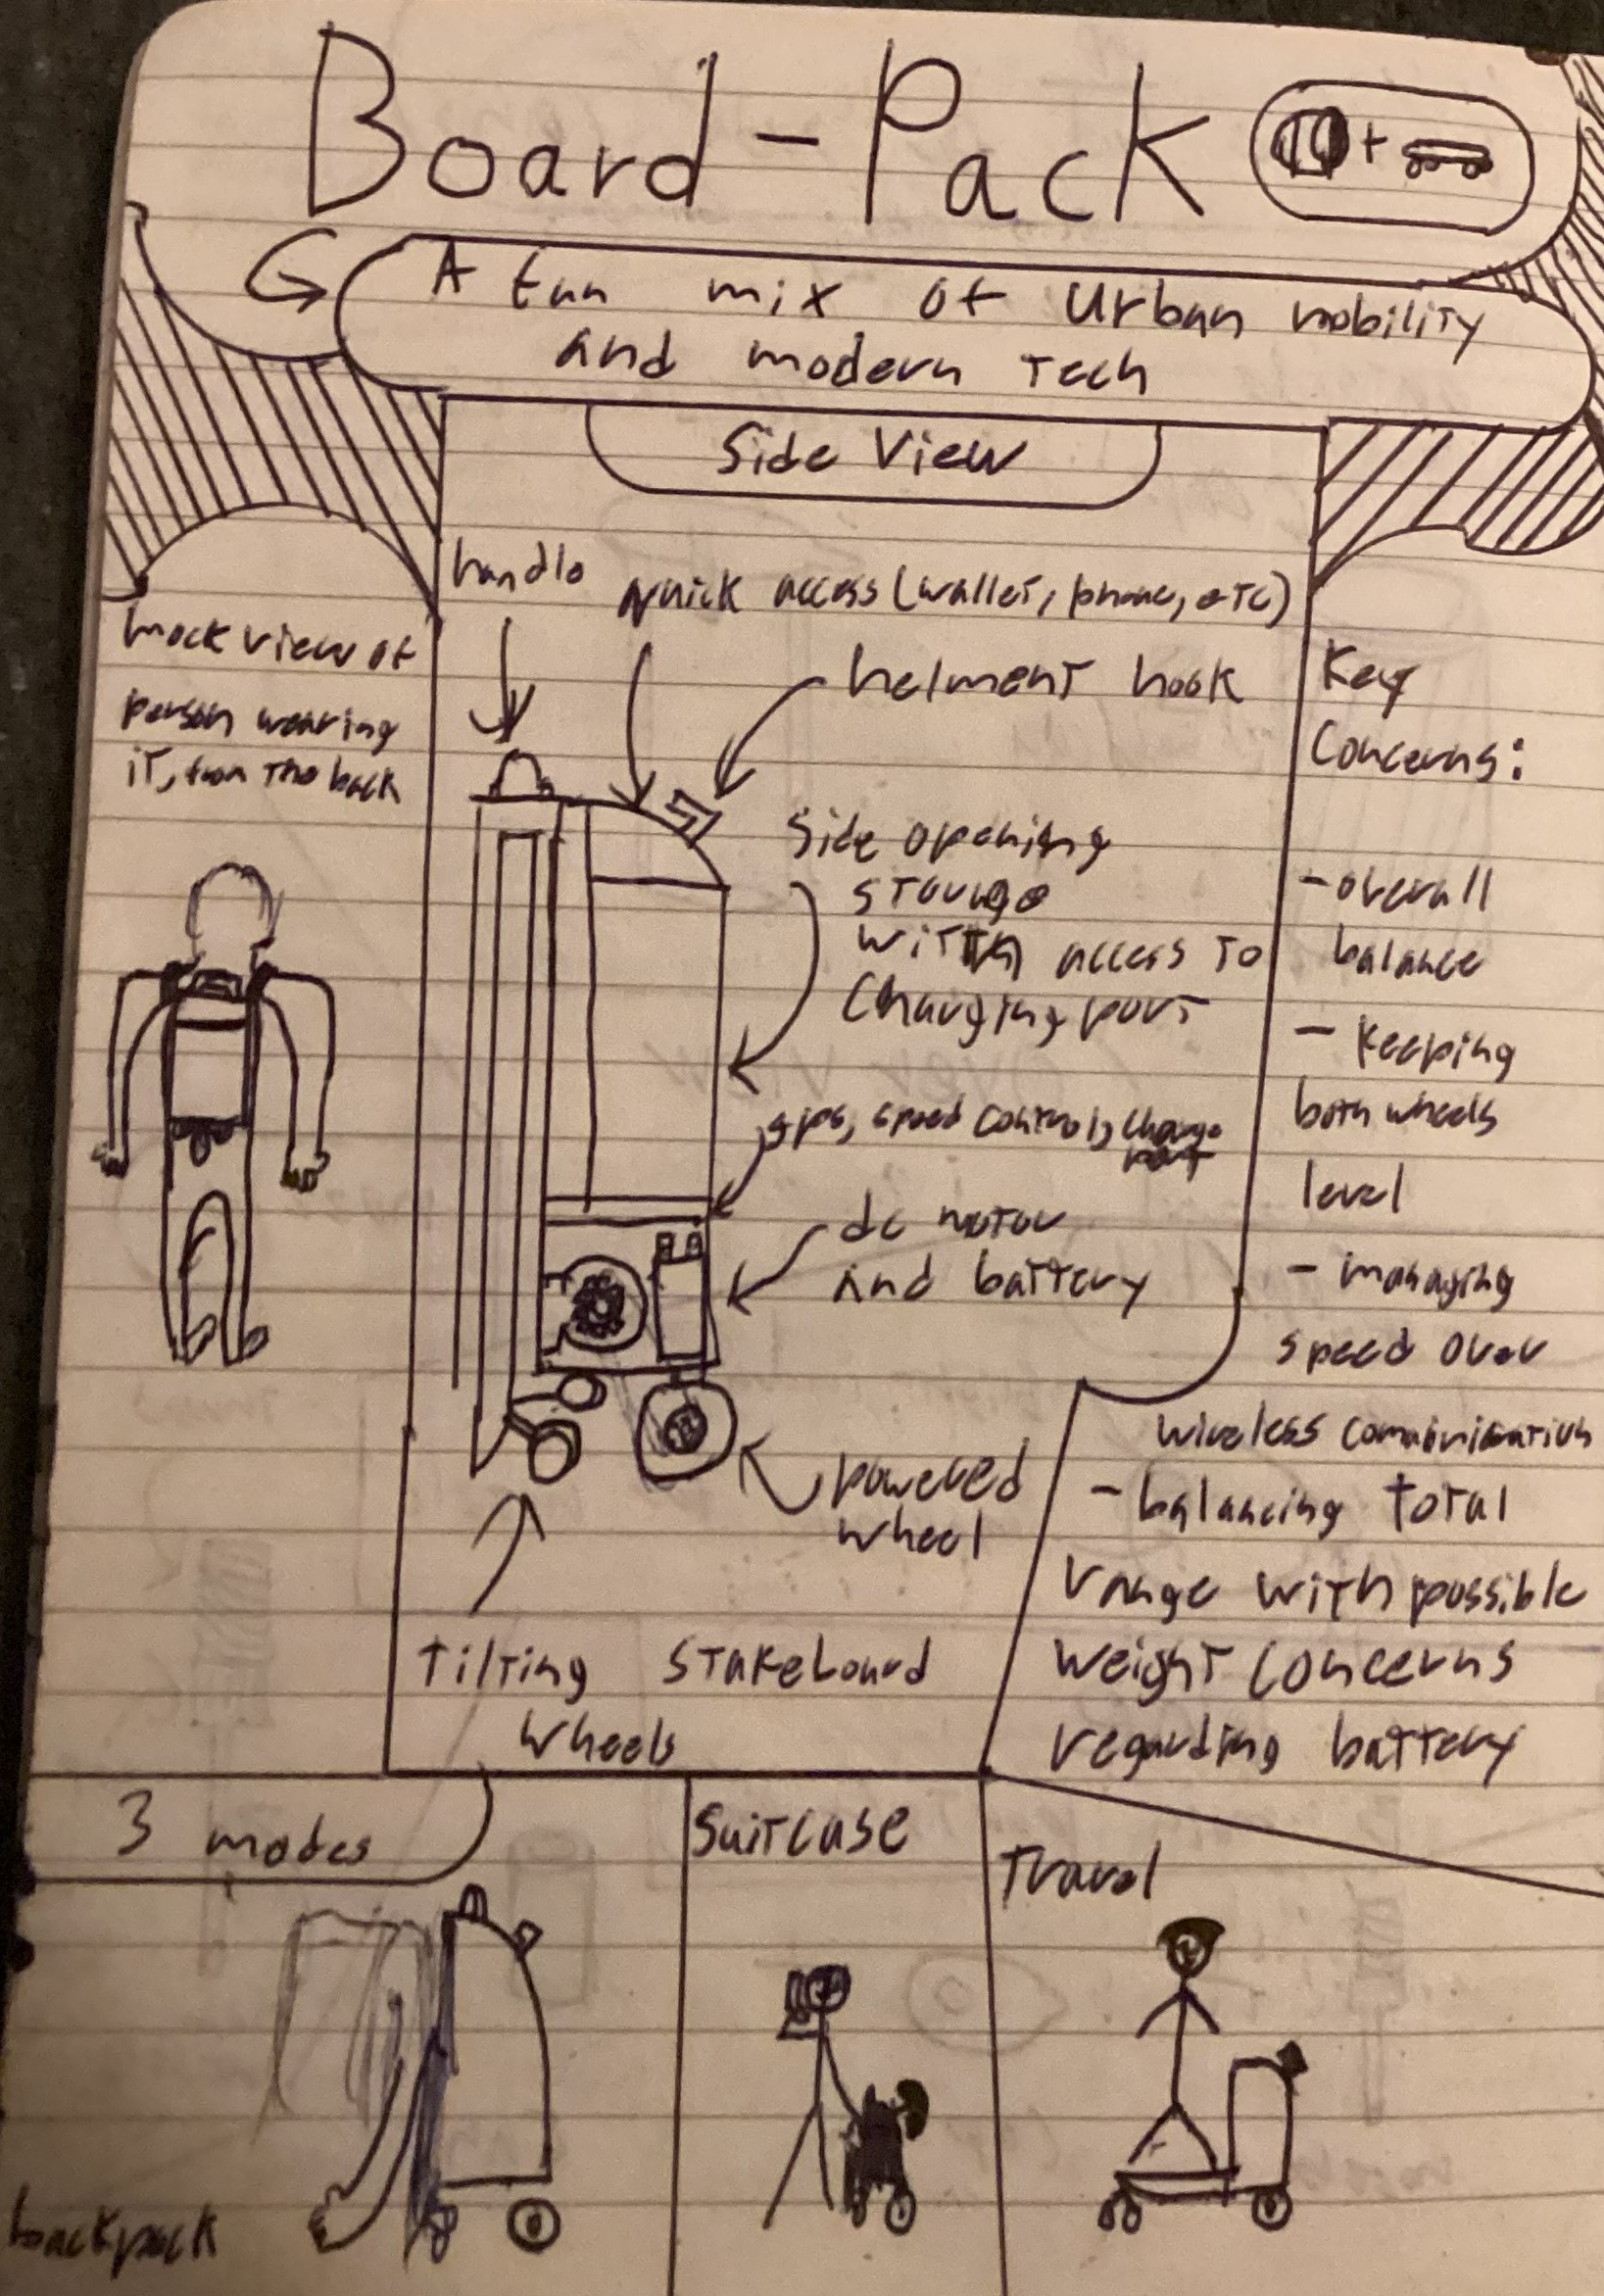 Board-Pack
+
A fun mix of Urban mobility
and modern tech
Side View
handle
quick access (wallet, phone, etc)
helment hook
Side opening
storage
with access to
Charging port
gps, speed control, charge
port
dc motor
and battery
powered
wheel
tilting stakeboard
wheels
mock view of
person wearing
it, from the back
Key
Concerns:
- overall
balance
- keeping
both wheels
level
- managing
speed over
wireless communication
- balancing total
range with possible
weight concerns
regarding battery
3 modes
backpack
Suitcase
Travel